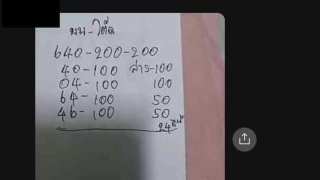 บน-โต๊ด
640-200-200
40-100 ล่าง-100
04-100 100
64-100 50
46-100 50